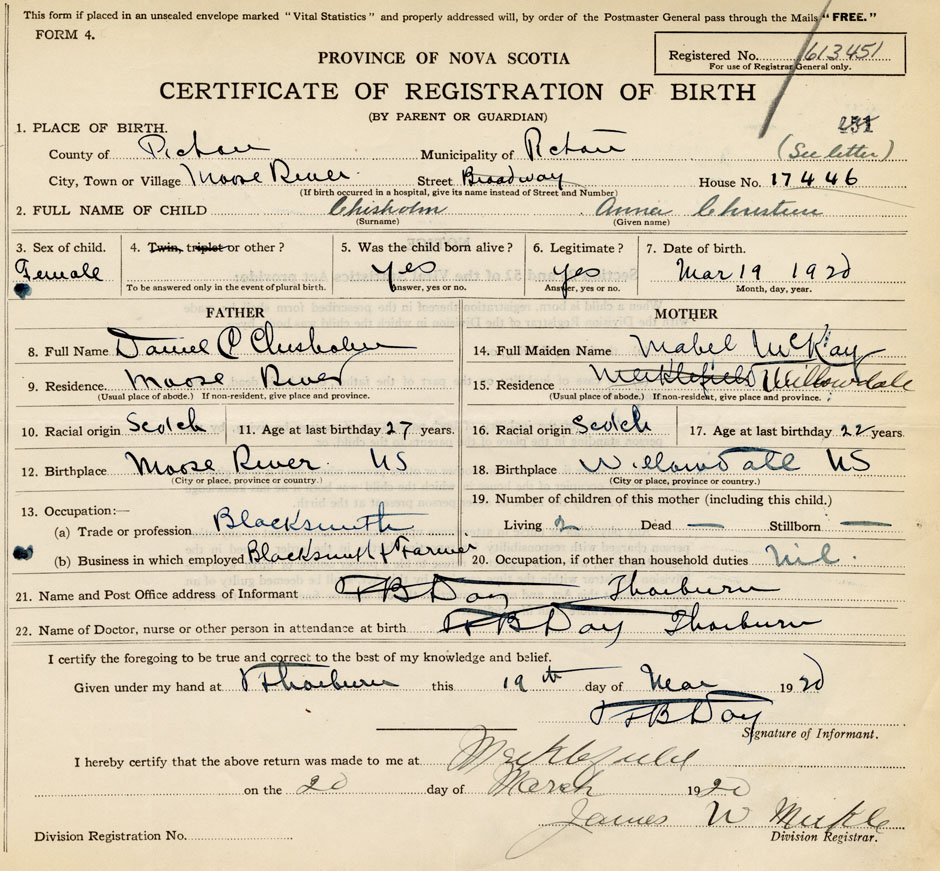 This form if placed in an unsealed envelope marked "Vital Statistics" and properly addressed will, by order of the Postmaster General pass through the Mails "FREE."
FORM 4.
Registered No. 613451
For use of Registrar General only.
PROVINCE OF NOVA SCOTIA
CERTIFICATE OF REGISTRATION OF BIRTH
(BY PARENT OR GUARDIAN)
1. PLACE OF BIRTH.
County of Pictou Municipality of Pictou (See letter)
City, Town or Village Moose River Street Broadway House No. 17446
(If birth occurred in a hospital, give its name instead of Street and Number)
2. FULL NAME OF CHILD Chisholm Anna Christine
(Surname) (Given name)
3. Sex of child. 4. Twin, triplet or other? 5. Was the child born alive? 6. Legitimate? 7. Date of birth.
Female yes yes Mar 19 1920
To be answered only in the event of plural birth. Answer, yes or no. Answer, yes or no. Month, day, year.
FATHER MOTHER
8. Full Name Daniel C Chisholm 14. Full Maiden Name Mabel McKay
9. Residence Moose River 15. Residence Meiklefield Willowdale
(Usual place of abode.) If non-resident, give place and province. (Usual place of abode.) If non-resident, give place and province.
10. Racial origin Scotch 11. Age at last birthday 27 years. 16. Racial origin Scotch 17. Age at last birthday 22 years.
12. Birthplace Moose River NS 18. Birthplace Willowdale NS
(City or place, province or country.) (City or place, province or country.)
13. Occupation:— 19. Number of children of this mother (including this child.)
(a) Trade or profession Blacksmith Living 2 Dead — Stillborn —
(b) Business in which employed Blacksmith & Farmer 20. Occupation, if other than household duties Nil.
21. Name and Post Office address of Informant F B Day Thorburn
22. Name of Doctor, nurse or other person in attendance at birth F B Day Thorburn
I certify the foregoing to be true and correct to the best of my knowledge and belief.
Given under my hand at Thorburn this 19th day of Mar 1920
F B Day
Signature of Informant.
I hereby certify that the above return was made to me at Meiklefield
on the 20 day of March 1920
James W Meikle
Division Registration No. Division Registrar.